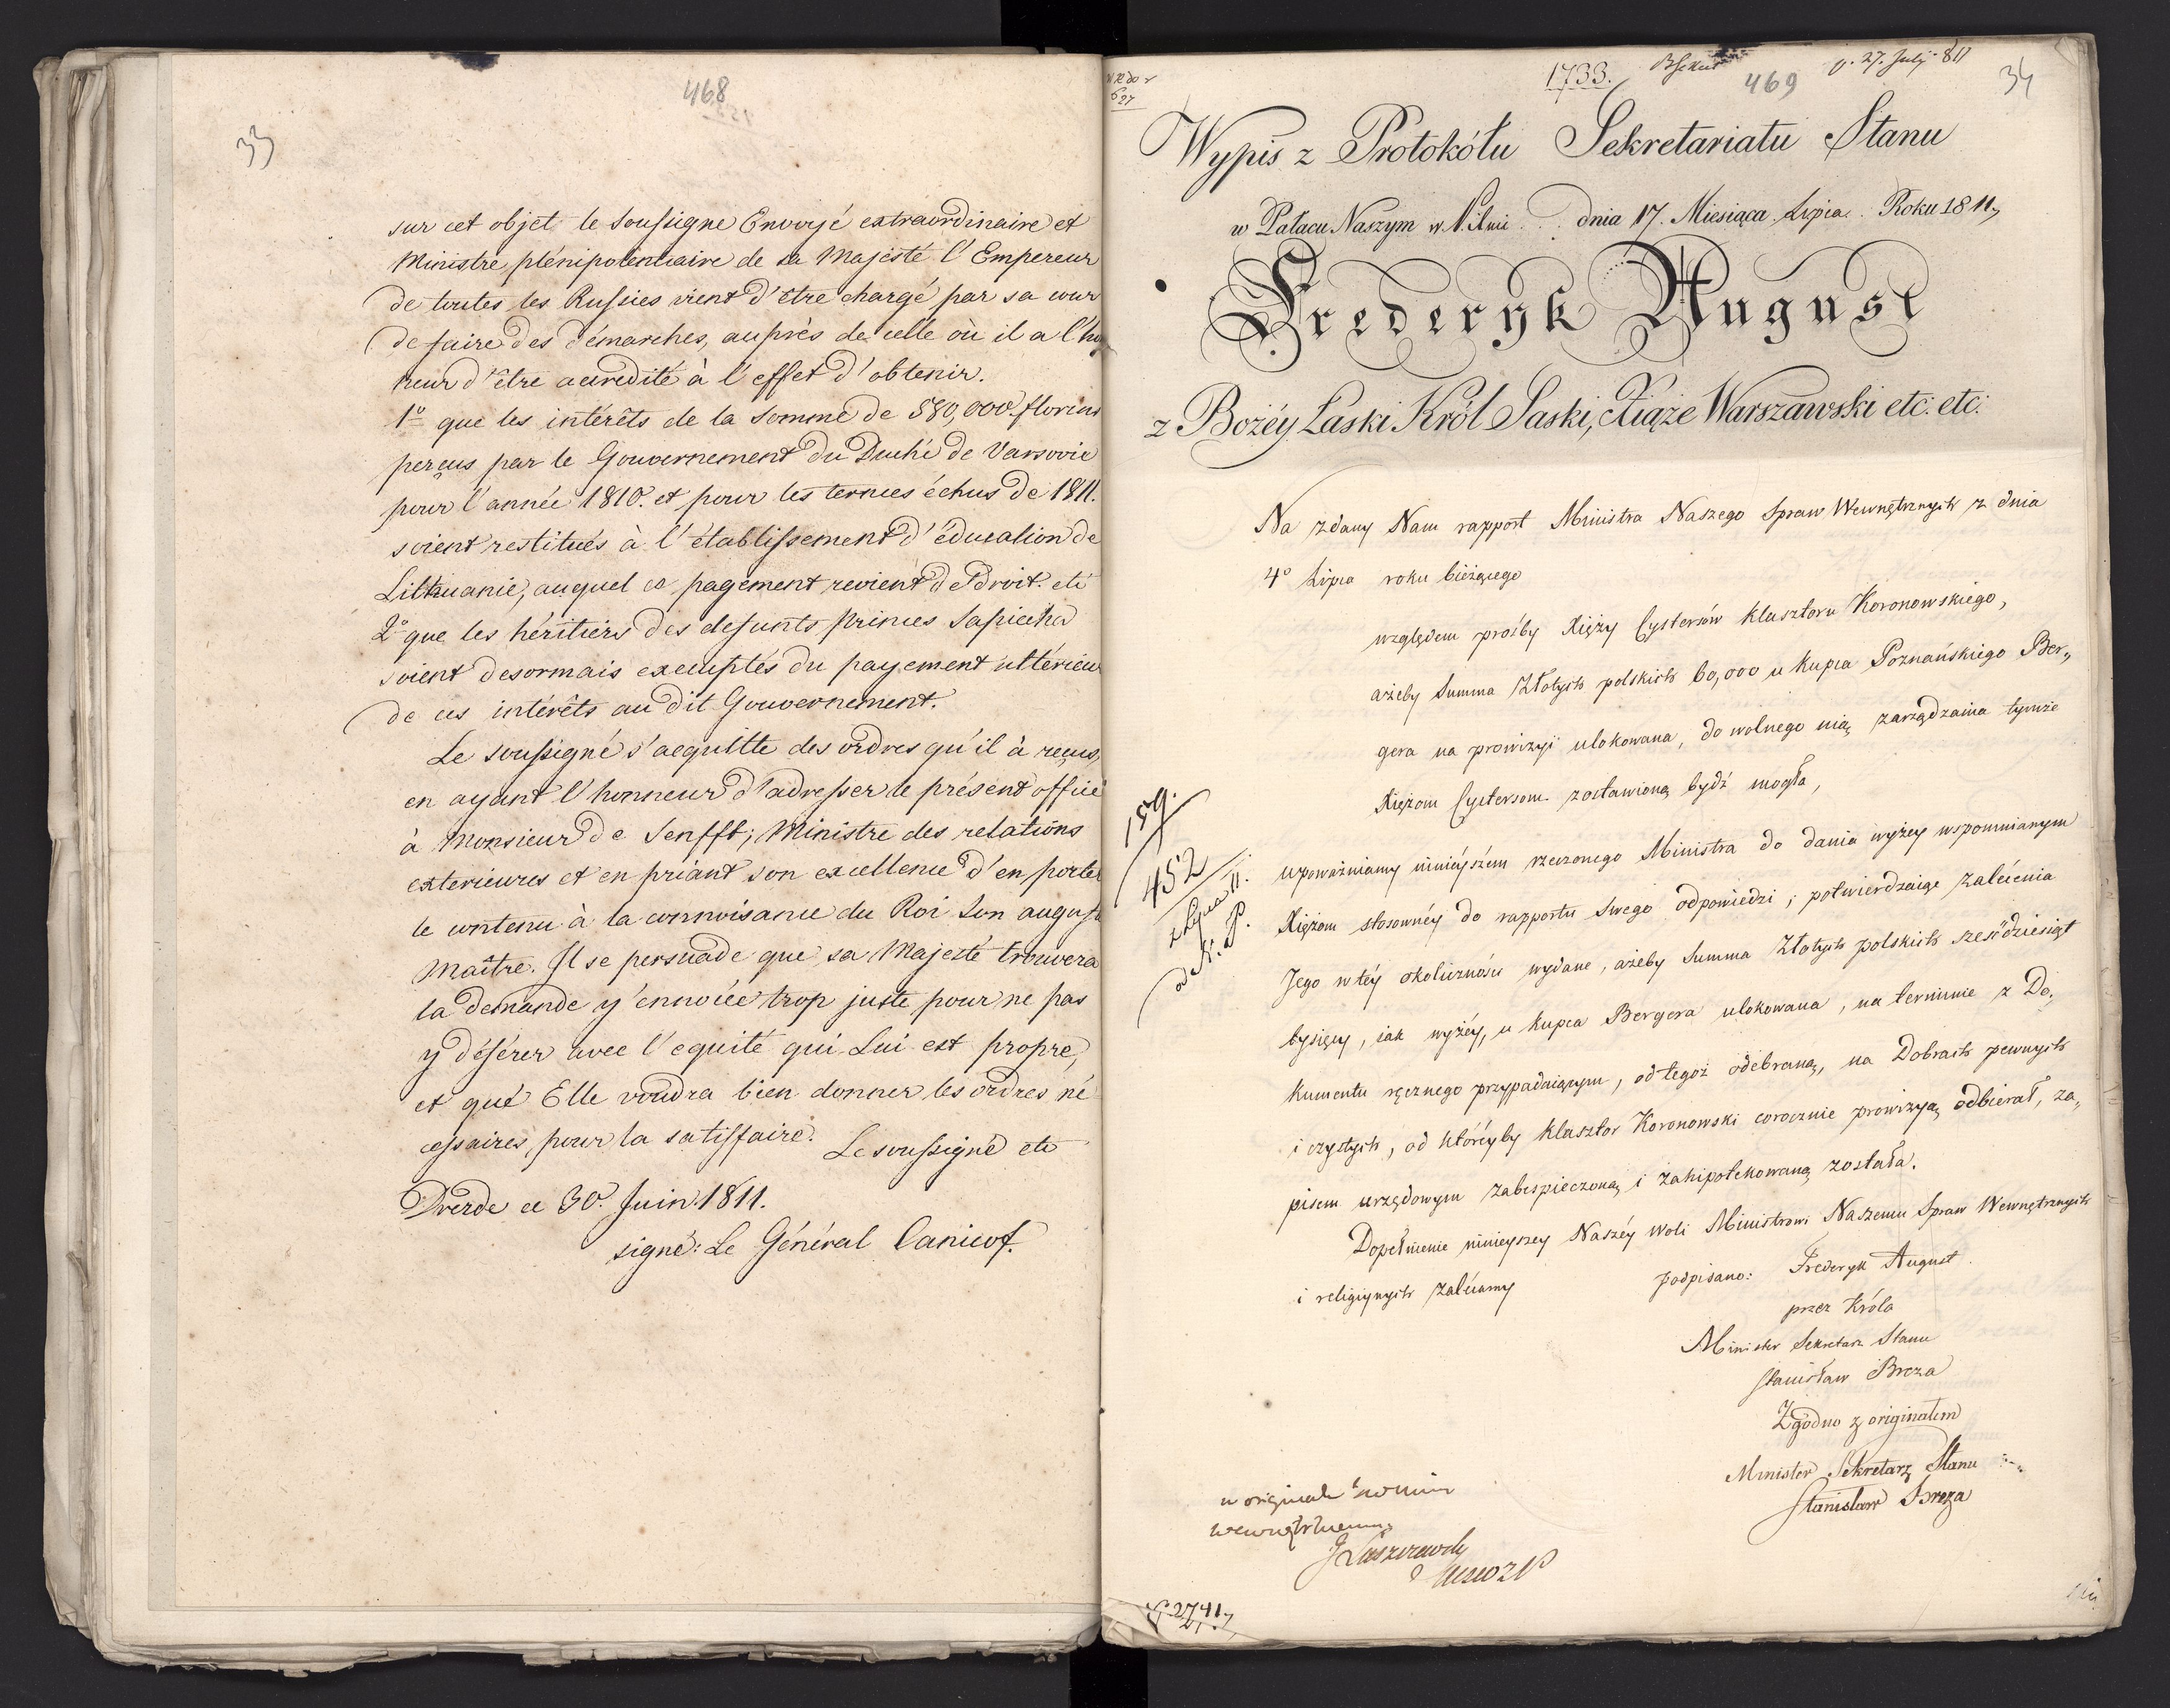 468
33
sur cet objet le soussigne Envoyé extraordinaire et
Ministre plénipotentiaire de sa Majesté l'Empereur
de toutes les Russies vient d'être chargé par sa cour
de faire des démarches, auprès de celle où il a l'ho
neur d'être accredité à l'effet d'obtenir.
1º que les intérêts de la somme de 580,000 florins
perçus par le Gouvernement du Duché de Varsovie
pour l'année 1810. et pour les termes échus de 1811.
soient restitués à l'établissement d'éducation de
Lithuanie, auquel ce payement revient de droit. etc
2º que les héritiers des defunts princes Sapieha
soient desormais exemptés du payement ultérieur
de ces intérêts au dit Gouvernement.
Le soussigné s'acquitte des ordres qu'il à reçus,
en ayant l'honneur d'adresser le présent office
à Monsieur de Senfft; Ministre des relations
exterieures et en priant son excellence d'en porter
le contenu à la connoisance du Roi Son auguste
Maître. Il se persuade que sa Majesté trouvera
la demande y ennoncée trop juste pour ne pas
y déférer avec l'equité qui Lui est propre,
et que Elle voudra bien donner les ordres né
cessaires pour la satisfaire. Le soussigné etc
Dresde ce 30. Juin 1811.
signé: Le Général Canicof.
627
1733.
469
p. 27. July 811
34
Wypis z Protokółu Sekretariatu Stanu
w Pałacu Naszym w Pilnic dnia 17. Miesiąca Lipca Roku 1811,
Frederyk August
z Bożéy Łaski Król Saski, Xiąże Warszawski etc. etc.
Na zdany Nam rapport Ministra Naszego Spraw Wewnętrznych z dnia
4º Lipca roku bieżącego
względem prośby Xięży Cystersów klasztoru Koronowskiego,
ażeby Summa Złotych polskich 60,000 u kupca Poznańskiego Ber„
gera na prowizyi ulokowana, do wolnego nią zarządzania tymże
Xiężom Cystersom zostawioną bydź mogła,
159.
452
z Lipca 11.
upoważniamy ninieyszem rzeczonego Ministra do dania wyżey wspomnianym
Xiężom stosownéy do rapportu swego odpowiedzi; potwierdzaiąc zalécenia
Jego w téy okoliczności wydane, ażeby Summa Złotych polskich sześćdziesiąt
tysięcy, iak wyżéy, u kupca Bergera ulokowana, na terminie z Do„
kumentu ręcznego przypadaiącym, od tegoż odebraną, na Dobrach pewnych
i czystych, od któréyby klasztor Koronowski corocznie prowizyą odbierał, za„
pisem urzędowym zabespieczoną i zahipotekowaną została.
Dopełnienie ninieyszey Naszéy woli Ministrowi Naszemu Spraw Wewnętrznych
i religiynych zalécamy
podpisano: Frederyk August.
przez Króla
Minister Sekretarz Stanu
Stanisław Breza
Zgodno z originałem
Minister Sekretarz Stanu
Stanisław Breza
J Łuszczewski
2741